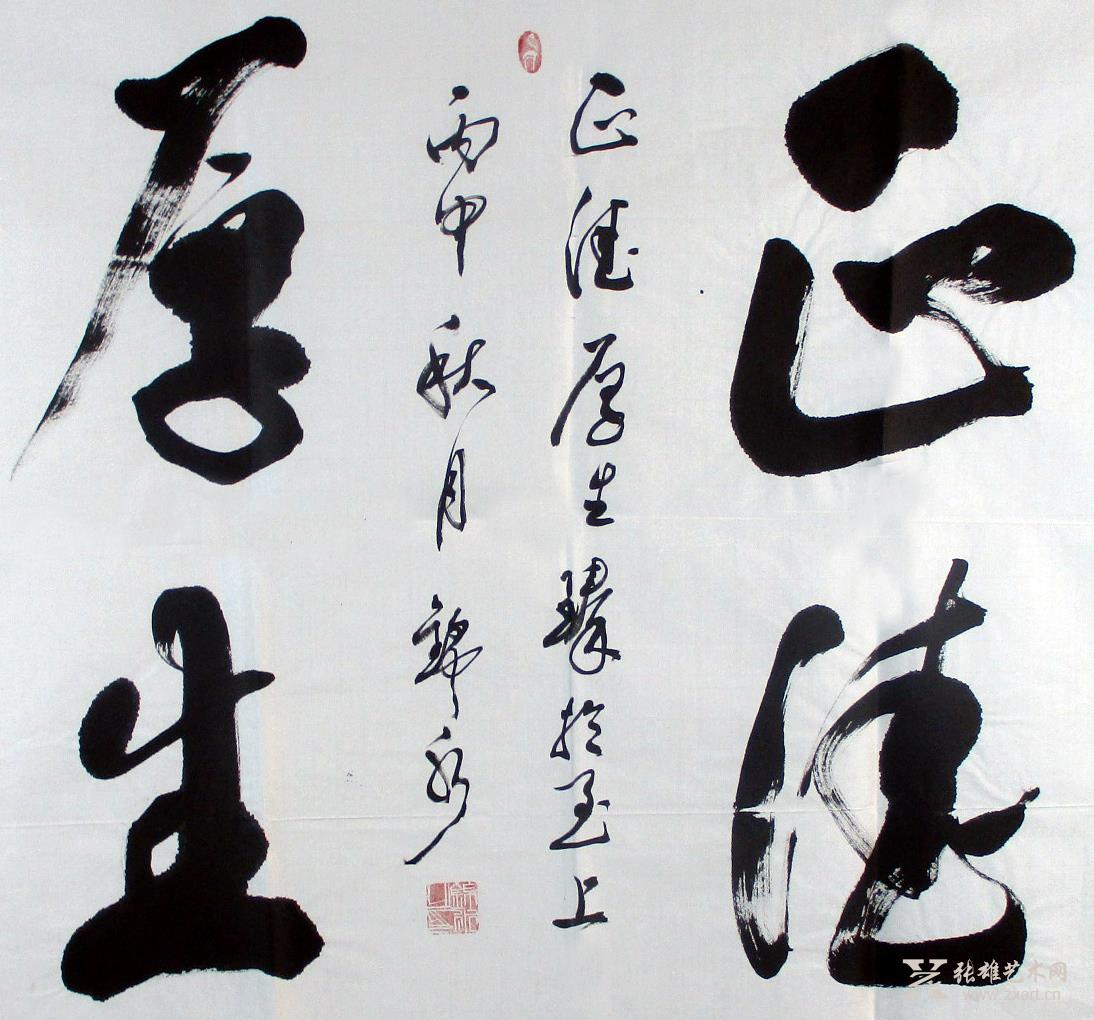 正德
厚生
正德厚生臻於至上
丙申秋月
张雄艺术网
www.zxart.cn